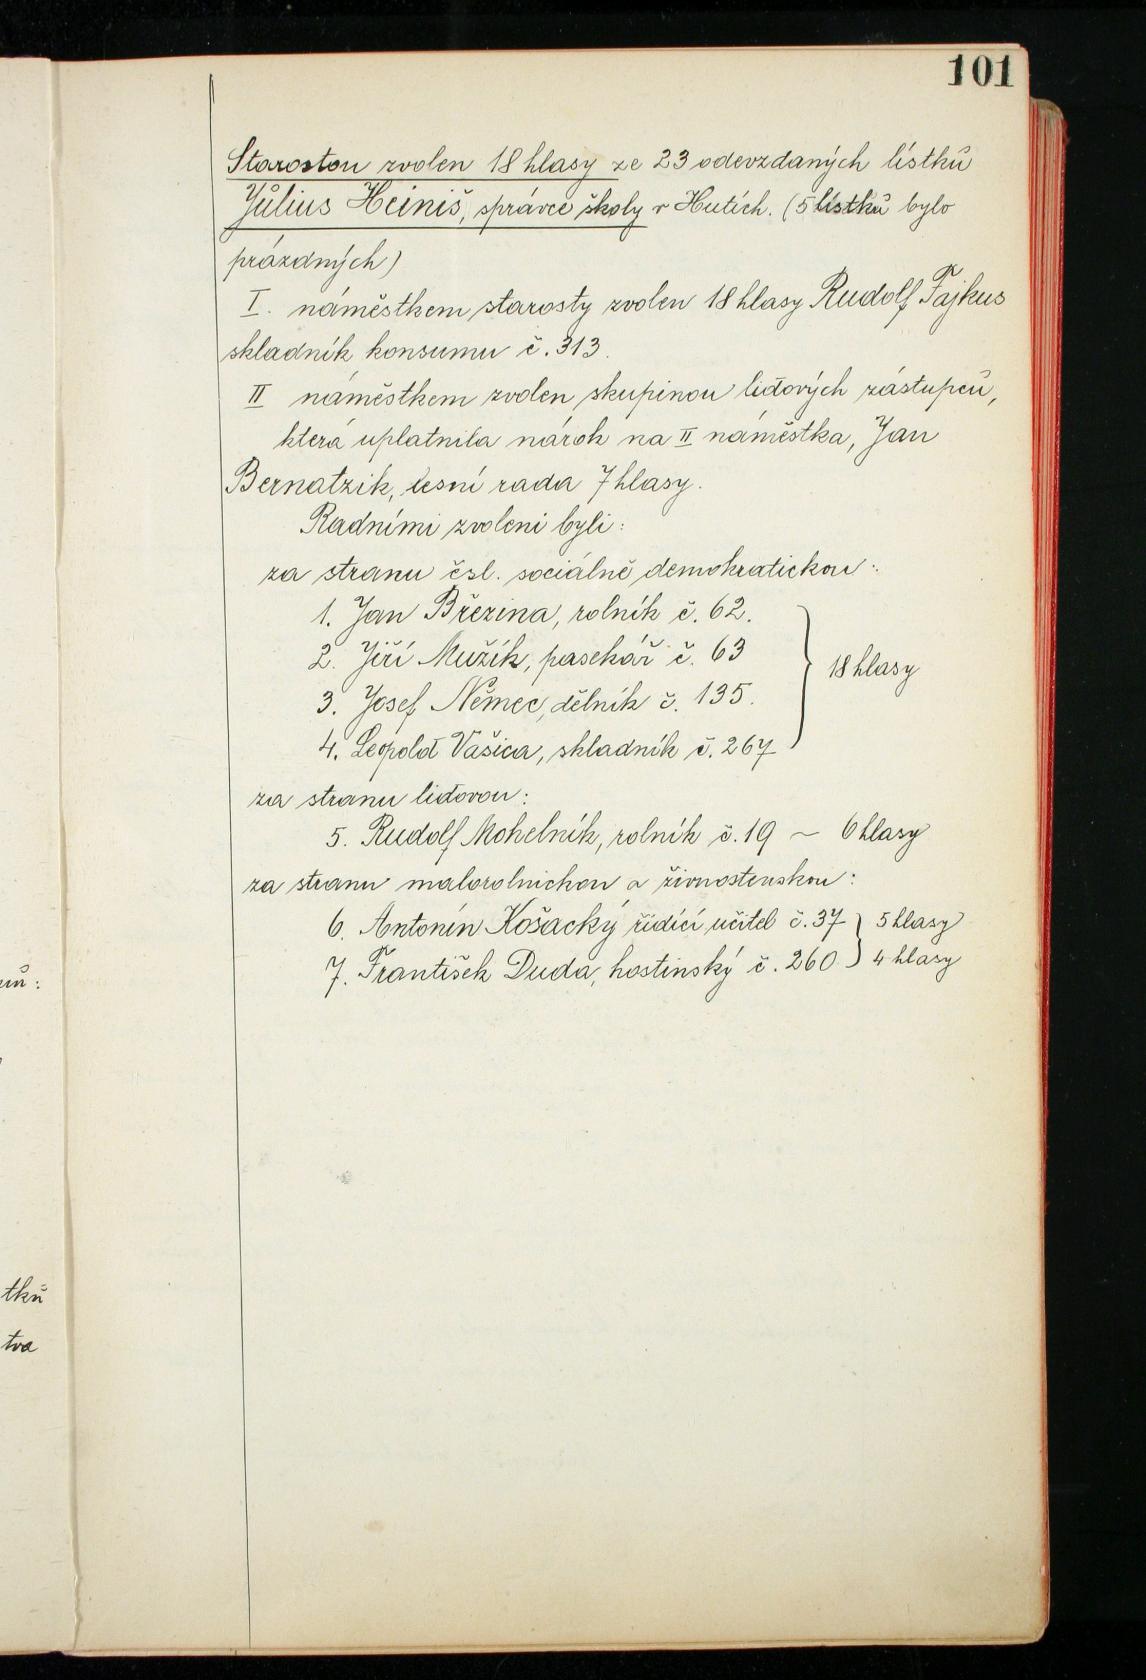 101
Starostou zvolen 18 hlasy ze 23 odevzdaných lístků
Július Heiniš, správce školy v Hutích. (5 lístků bylo
prázdných)
I. náměstkem starosty zvolen 18 hlasy Rudolf Fajkus
skladník konsumu č. 313.
II náměstkem zvolen skupinou lidových zástupců,
která uplatnila nárok na II náměstka, Jan
Bernatzik, lesní rada 7 hlasy.
Radními zvoleni byli:
za stranu čsl. sociálně demokratickou:
1. Jan Březina, rolník č. 62.
2. Jiří Mužík, pasekář č. 63
18 hlasy
3. Josef Němec, dělník č. 135.
4. Leopold Vašica, skladník č. 267
za stranu lidovou:
5. Rudolf Mohelník, rolník č. 19 – 6 hlasy
za stranu malorolnickou a živnostenskou:
6. Antonín Košacký řídící učitel č. 37 } 5 hlasy
7. František Duda, hostinský č. 260 } 4 hlasy
tků
tva